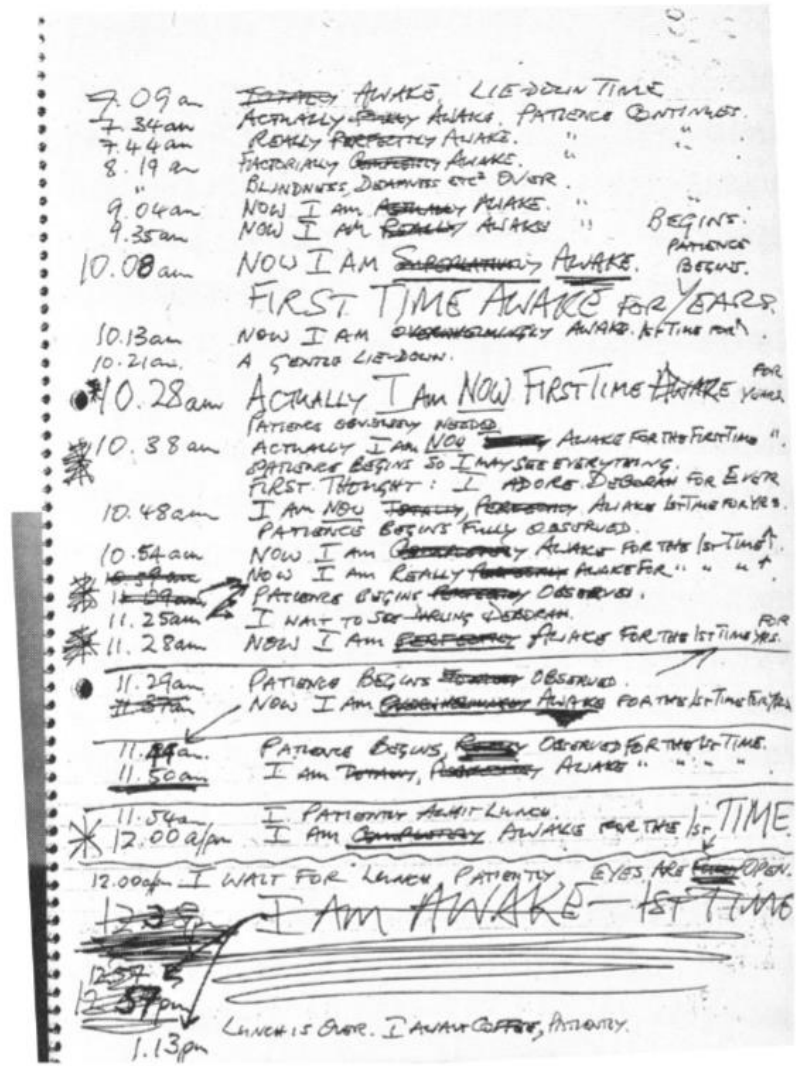 7.09am TOTALLY AWAKE. LIE-DOWN TIME
7.34am ACTUALLY FULLY AWAKE. PATIENCE CONTINUES.
7.44am REALLY PERFECTLY AWAKE. " "
8.19am FACTORIALLY COMPLETELY AWAKE. " "
" BLINDNESS, DEAFNESS ETC OVER.
9.04am NOW I AM ACTUALLY AWAKE. " "
9.35am NOW I AM REALLY AWAKE " BEGINS.
10.08am NOW I AM SUPERLATIVELY AWAKE. PATIENCE BEGINS.
FIRST TIME AWAKE FOR YEARS.
10.13am NOW I AM OVERWHELMINGLY AWAKE. 1st TIME FOR ^
10.21am. A GENTLE LIE-DOWN.
*10.28am ACTUALLY I AM NOW FIRST TIME AWAKE FOR YEARS
PATIENCE OBVIOUSLY NEEDED.
10.38am ACTUALLY I AM NOW AWAKE FOR THE FIRST TIME ".
PATIENCE BEGINS SO I MAY SEE EVERYTHING.
FIRST THOUGHT: I ADORE DEBORAH FOR EVER
10.48am I AM NOW TOTALLY, PERFECTLY AWAKE 1st TIME FOR YRS.
PATIENCE BEGINS FULLY OBSERVED.
10.54am NOW I AM COMPLETELY AWAKE FOR THE 1st TIME ^.
10.59am NOW I AM REALLY PERFECTLY AWAKE FOR " " "
11.09am PATIENCE BEGINS OBSERVED.
11.25am I WAIT TO SEE DARLING DEBORAH.
11.28am NOW I AM PERFECTLY AWAKE FOR THE 1st TIME FOR YRS.
11.29am PATIENCE BEGINS OBSERVED.
11.37am NOW I AM OVERWHELMINGLY AWAKE FOR THE 1st TIME FOR YRS
11.44am. PATIENCE BEGINS, OBSERVED FOR THE 1st TIME.
11.50am I AM TOTALLY, PERFECTLY AWAKE " " " "
11.54am I PATIENTLY AWAIT LUNCH.
12.00 a/pm I AM COMPLETELY AWAKE FOR THE 1st TIME.
12.00 I WAIT FOR LUNCH PATIENTLY EYES ARE OPEN.
I AM AWAKE — 1ST TIME
12.57pm
1.13pm LUNCH IS OVER. I AWAIT COFFEE, PATIENTLY.